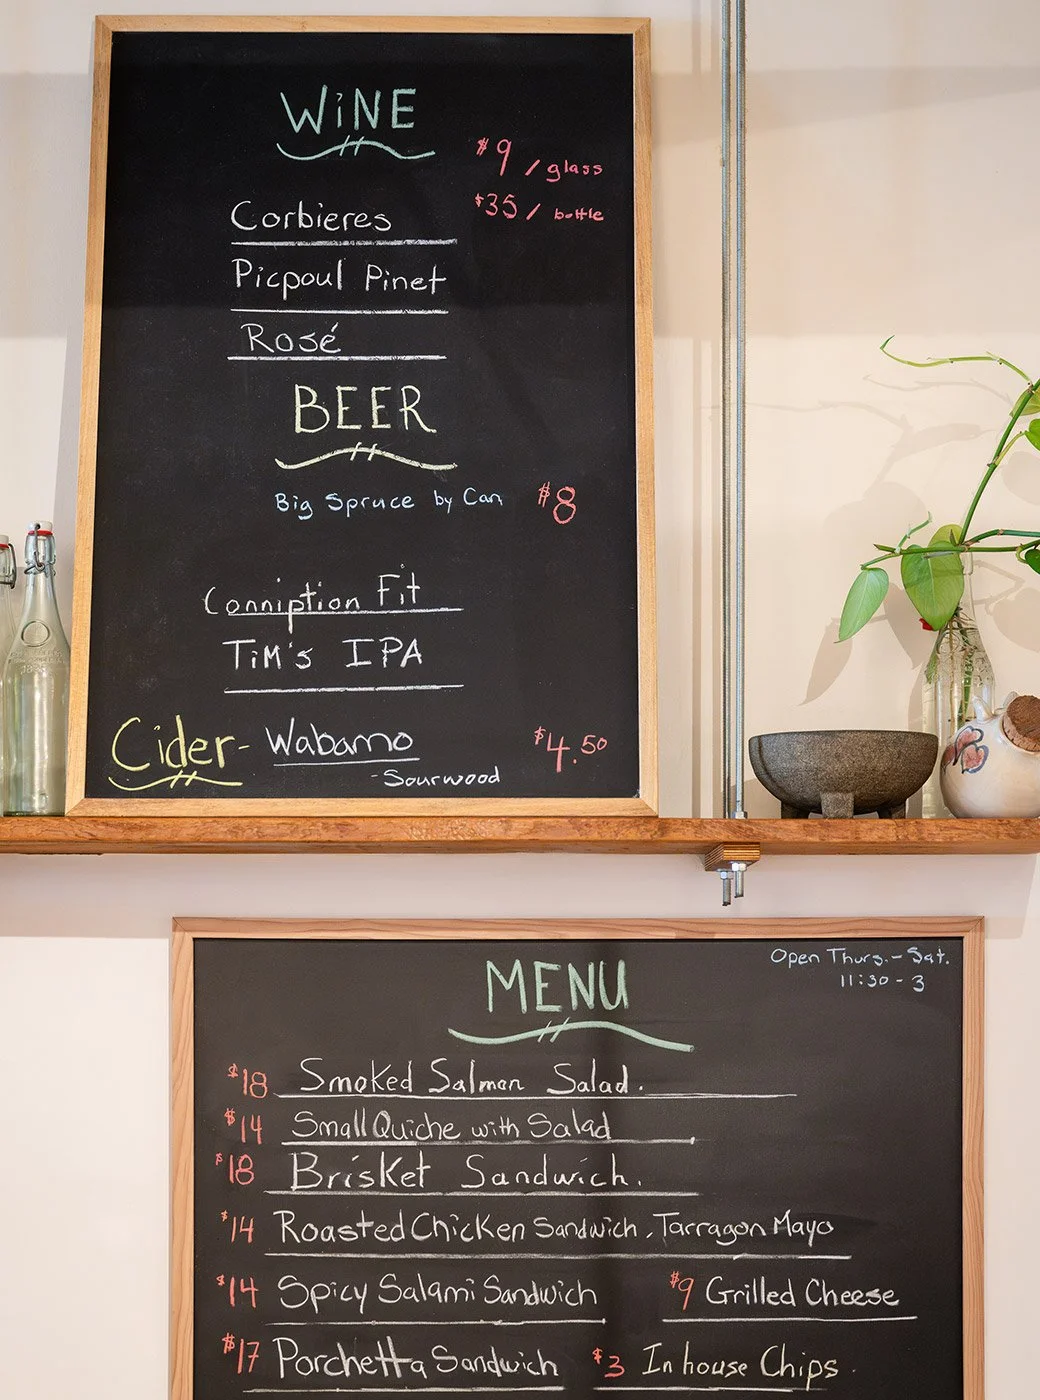 WiNE
$9 / glass
$35 / bottle
Corbieres
Picpoul Pinet
Rosé
BEER
Big Spruce by Can $8
Conniption Fit
TiM's IPA
Cider- Wabamo $4.50
-Sourwood
MENU
Open Thurs.-Sat.
11:30-3
$18 Smoked Salmon Salad.
$14 Small Quiche with Salad
$18 Brisket Sandwich.
$14 Roasted Chicken Sandwich, Tarragon Mayo
$14 Spicy Salami Sandwich $9 Grilled Cheese
$17 Porchetta Sandwich $3 In house Chips.